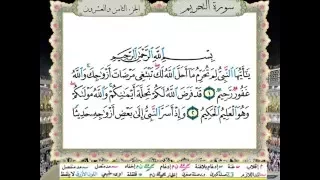 سورة التحريم
الجزء الثامن والعشرون
بِسْمِ اللَّهِ الرَّحْمَٰنِ الرَّحِيمِ
يَا أَيُّهَا النَّبِيُّ لِمَ تُحَرِّمُ مَا أَحَلَّ اللَّهُ لَكَ تَبْتَغِي مَرْضَاتَ أَزْوَاجِكَ وَاللَّهُ
غَفُورٌ رَّحِيمٌ ١ قَدْ فَرَضَ اللَّهُ لَكُمْ تَحِلَّةَ أَيْمَانِكُمْ وَاللَّهُ مَوْلَاكُمْ
وَهُوَ الْعَلِيمُ الْحَكِيمُ ٢ وَإِذْ أَسَرَّ النَّبِيُّ إِلَىٰ بَعْضِ أَزْوَاجِهِ حَدِيثًا